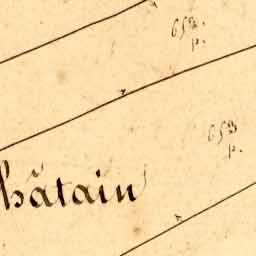 652.
p.
653
p.
hâtain